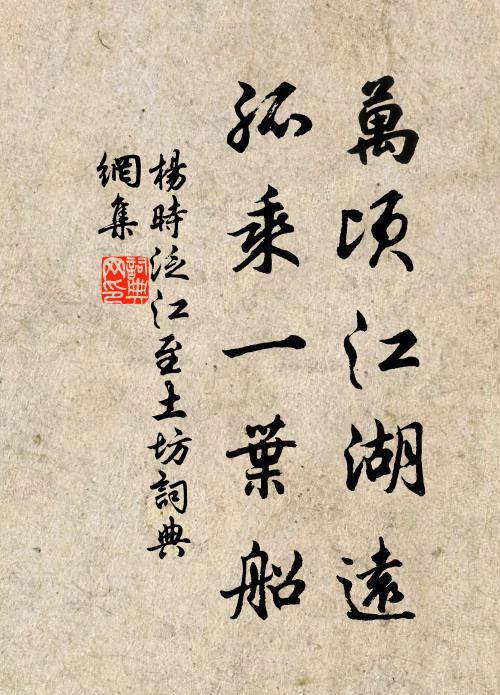 萬頃江湖遠
孤乘一葉船
楊時泛江至土坊詞典
網集
詞典
网印